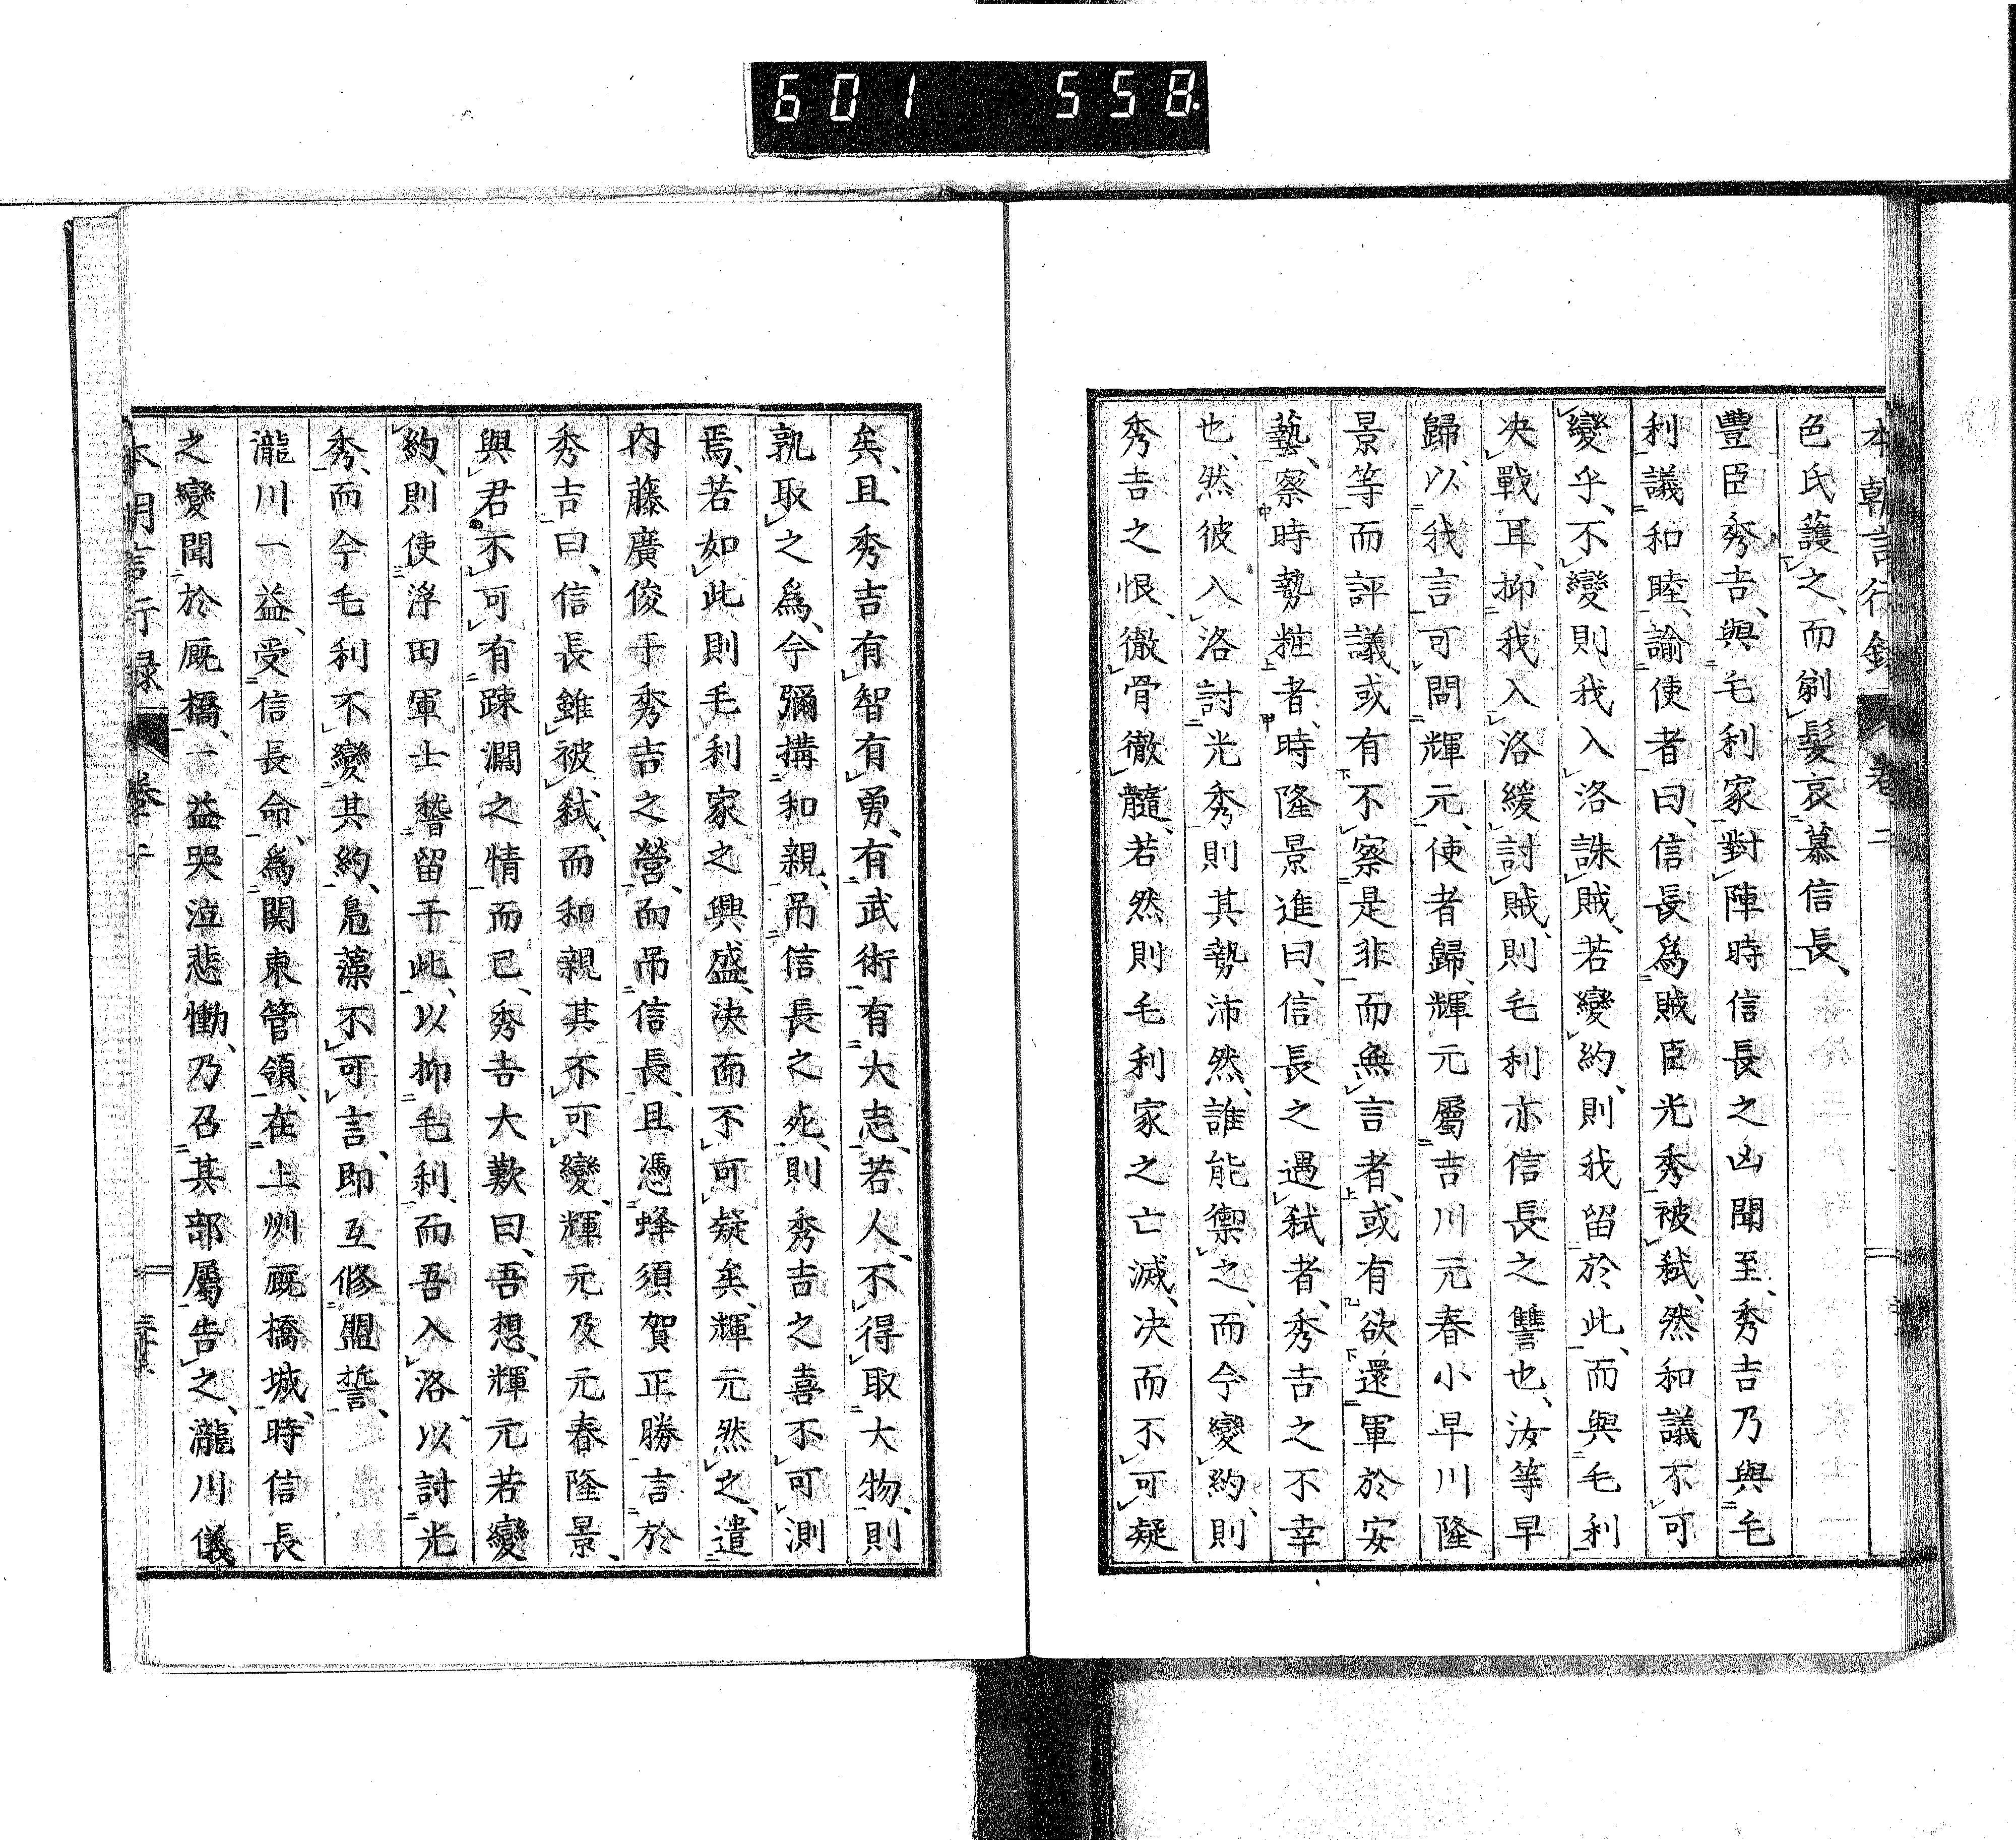 601 558
本朝言行錄 卷二
色氏護之、而剃髮哀慕信長、
豐臣秀吉、與毛利家對陣時信長之凶聞至、秀吉乃與毛
利議和睦、諭使者曰、信長爲賊臣光秀被弑、然和議不可
變乎、不變則我入洛誅賊、若變約、則我留於此、而與毛利
决戰耳、抑我入洛緩討賊、則毛利亦信長之讐也、汝等早
歸、以我言可問輝元、使者歸、輝元屬吉川元春小早川隆
景等而評議、或有不察是非而無言者、或有欲還軍於安
藝、察時勢粧者、時隆景進曰、信長之遇弑者、秀吉之不幸
也、然彼入洛討光秀則其勢沛然、誰能禦之、而今變約、則
秀吉之恨、徹骨徹髓、若然則毛利家之亡滅、决而不可疑
矣、且秀吉有智有勇、有武術有大志、若人、不得取大物、則
孰取之爲、今彌搆和親、吊信長之死、則秀吉之喜不可測
焉、若如此則毛利家之興盛、决而不可疑矣、輝元然之、遣
内藤廣俊于秀吉之營、而吊信長、且憑蜂須賀正勝言於
秀吉曰、信長雖被弑、而和親其不可變、輝元及元春隆景、
與君不可有踈濶之情而已、秀吉大歎曰、吾想、輝元若變
約、則使浮田軍士暫留于此、以抑毛利、而吾入洛以討光
秀、而今毛利不變其約、鳧藻不可言、即互修盟誓、
瀧川一益、受信長命、爲関東管領、在上州厩橋城、時信長
之變聞於厩橋、一益哭泣悲慟、乃召其部屬告之、瀧川儀
本朝言行録 卷二